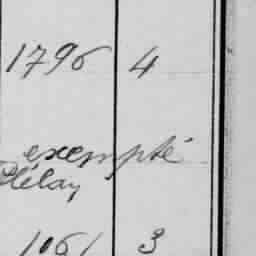 1796 4
exempté
Délay
1061 3